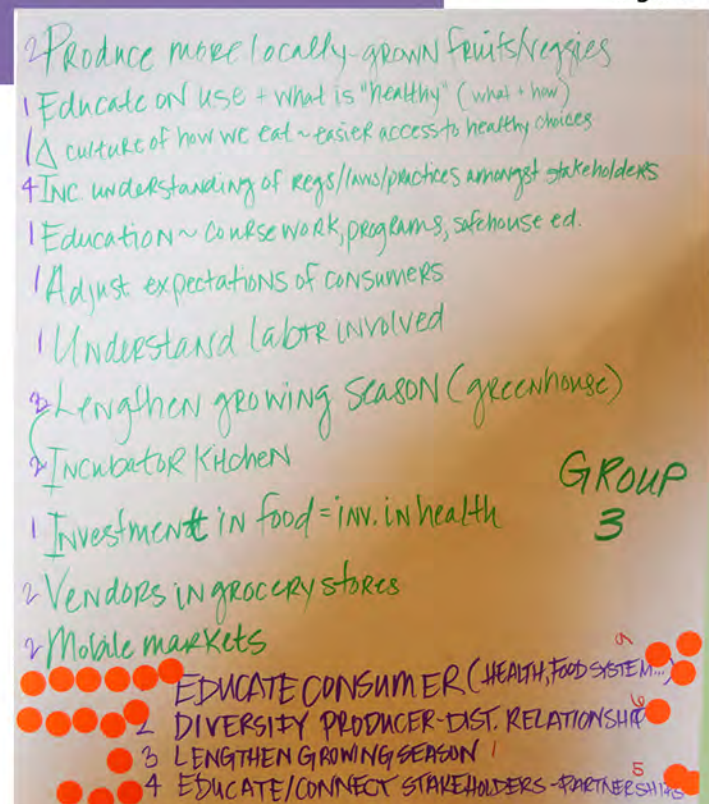 2 Produce more locally-grown fruits/veggies
1 Educate on use + what is "healthy" (what + how)
1 Δ culture of how we eat ~ easier access to healthy choices
4 Inc understanding of regs/laws/practices amongst stakeholders
1 Education ~ coursework, programs, safehouse ed.
1 Adjust expectations of consumers
1 Understand labor involved
Lengthen growing season (greenhouse)
2 Incubator Kitchen
GROUP
3
1 Investment in food = inv. in health
2 Vendors in grocery stores
2 Mobile markets
9
EDUCATE CONSUMER (HEALTH, FOOD SYSTEM...)
6
2 DIVERSIFY PRODUCER-DIST. RELATIONSHIP
3 LENGTHEN GROWING SEASON 1
5
4 EDUCATE/CONNECT STAKEHOLDERS - PARTNERSHIPS